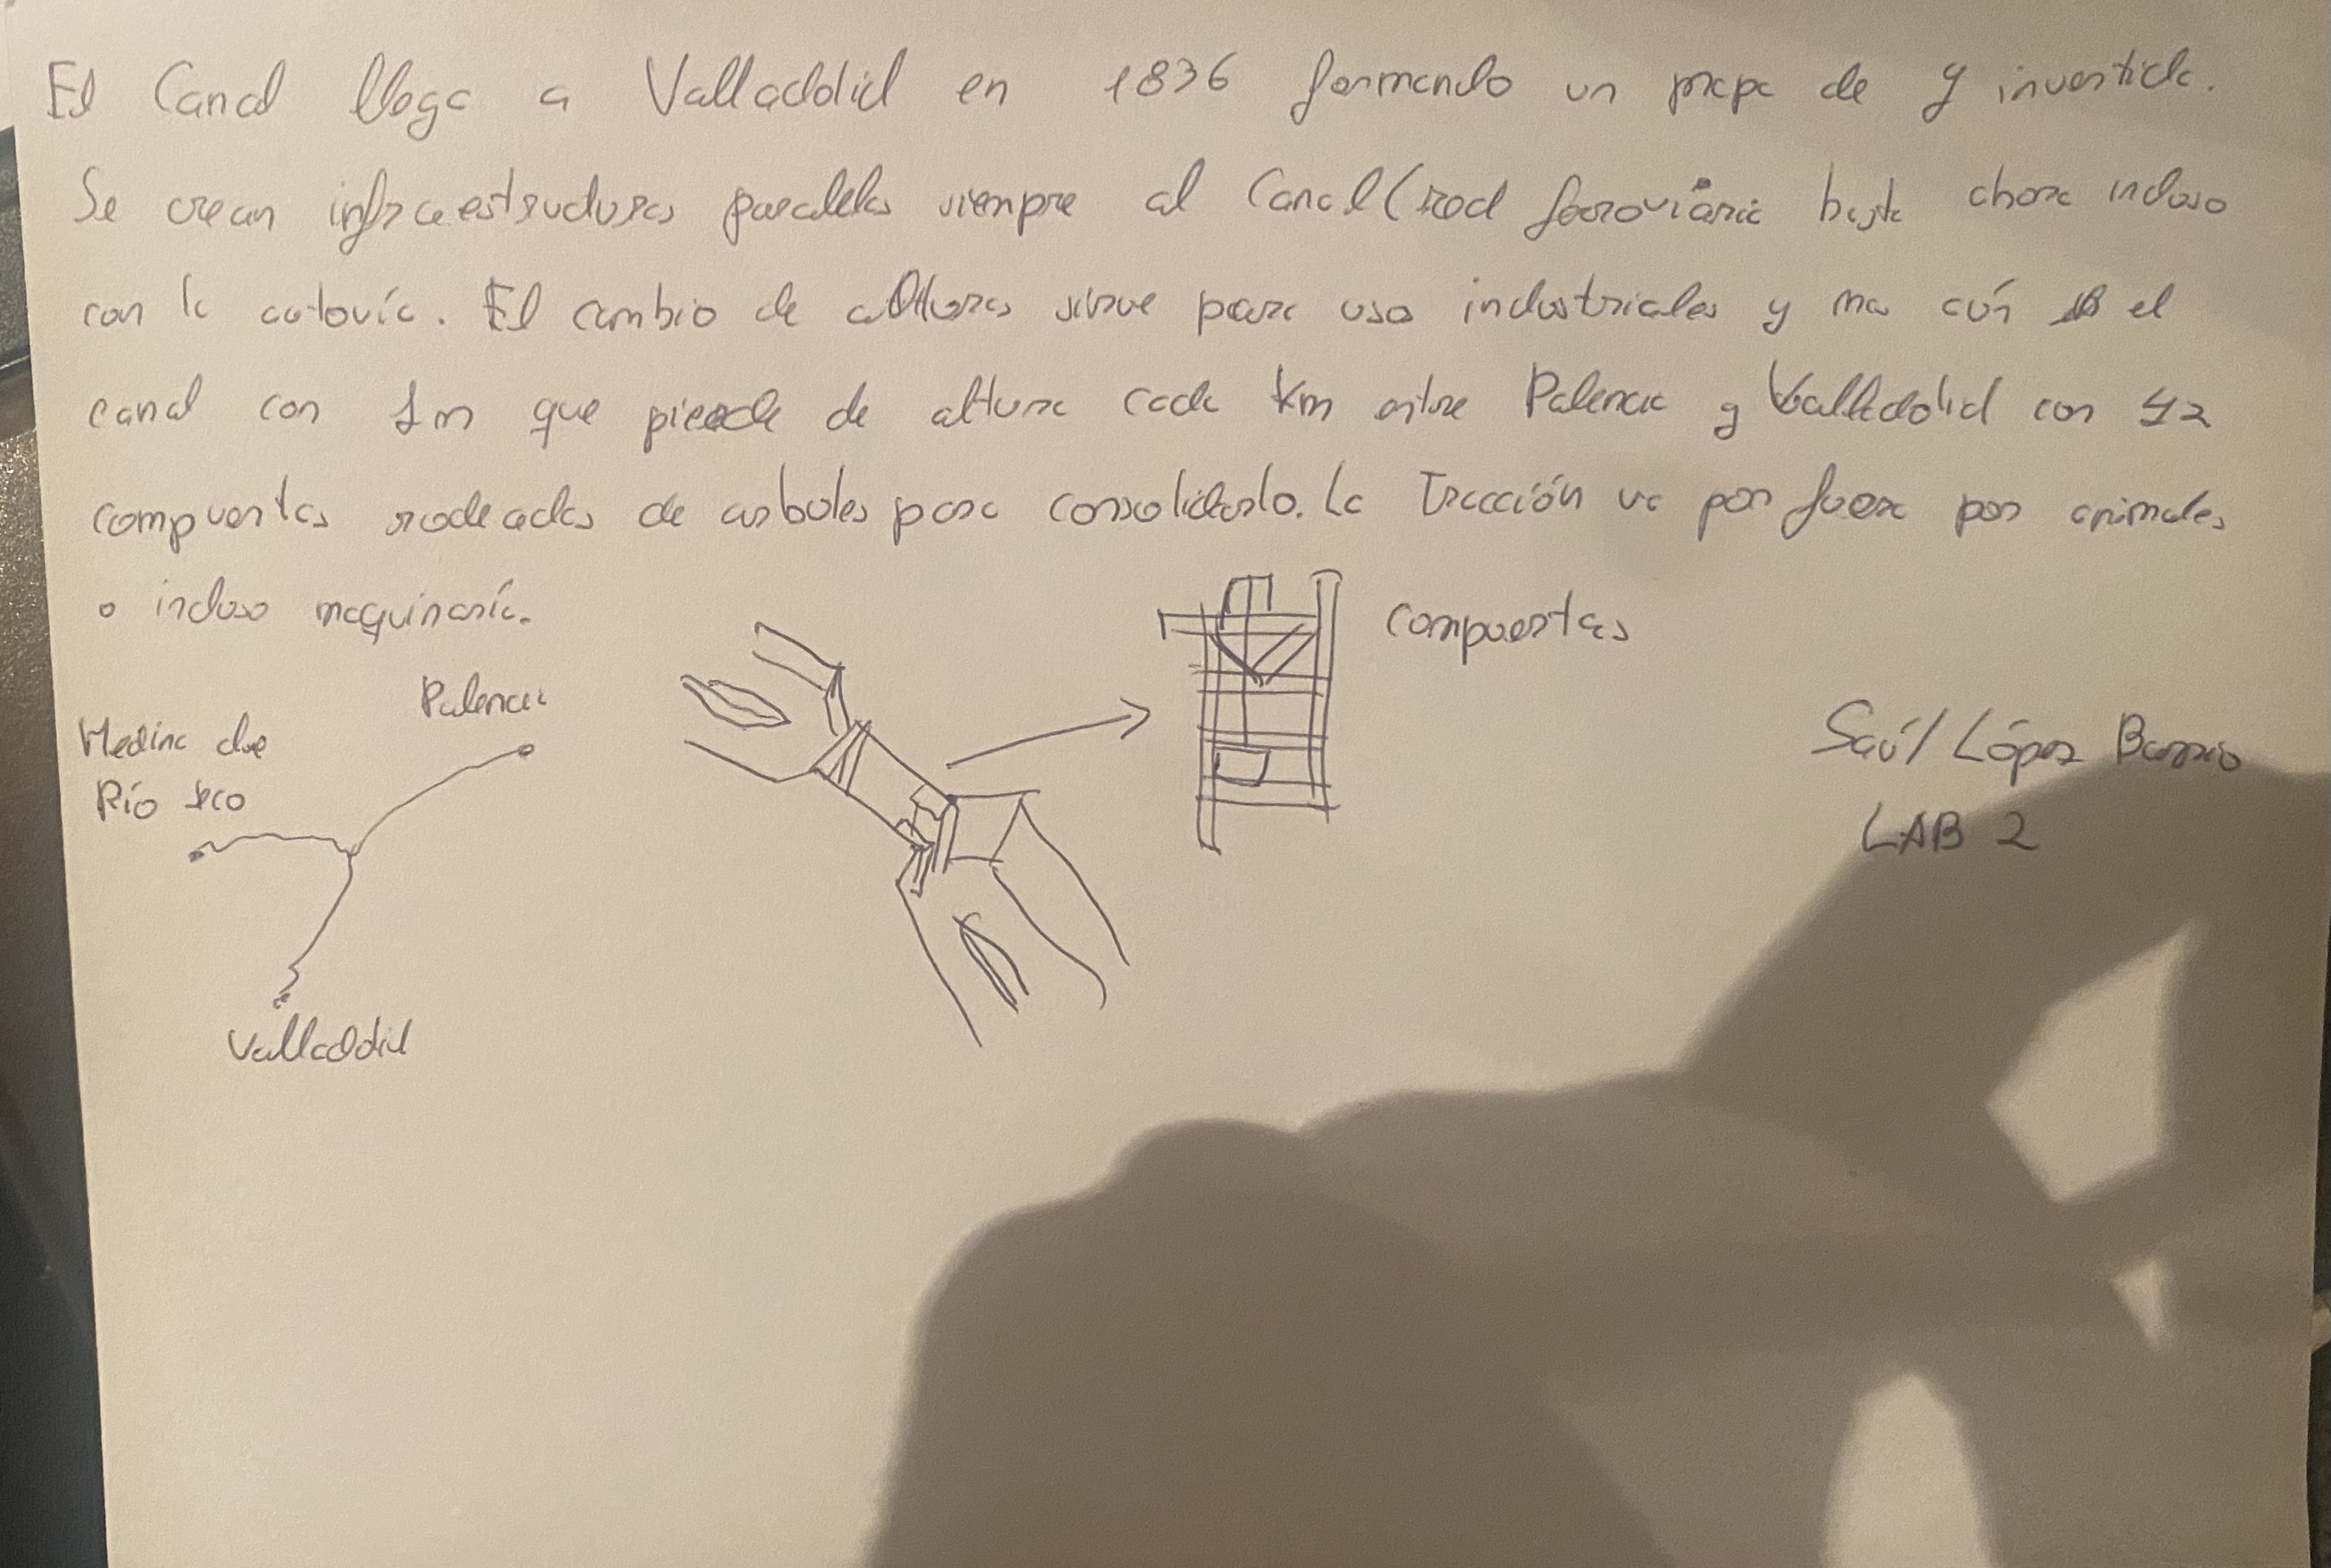 El Canal llega a Valladolid en 1836 formando un mapa de Y invertida.
Se crean infraestructuras paralelas siempre al Canal (red ferroviaria hasta ahora incluso
con la autovía. El cambio de alturas sirve para uso industriales y mas aún el
canal con 1m que pierde de altura cada Km entre Palencia y Valladolid con 42
compuertas rodeadas de arboles para consolidarlo. La Tracción va por fuera por animales
o incluso maquinaria.
compuertas
Palencia
Medina de
Río seco
Saúl López Barrio
LAB 2
Valladolid